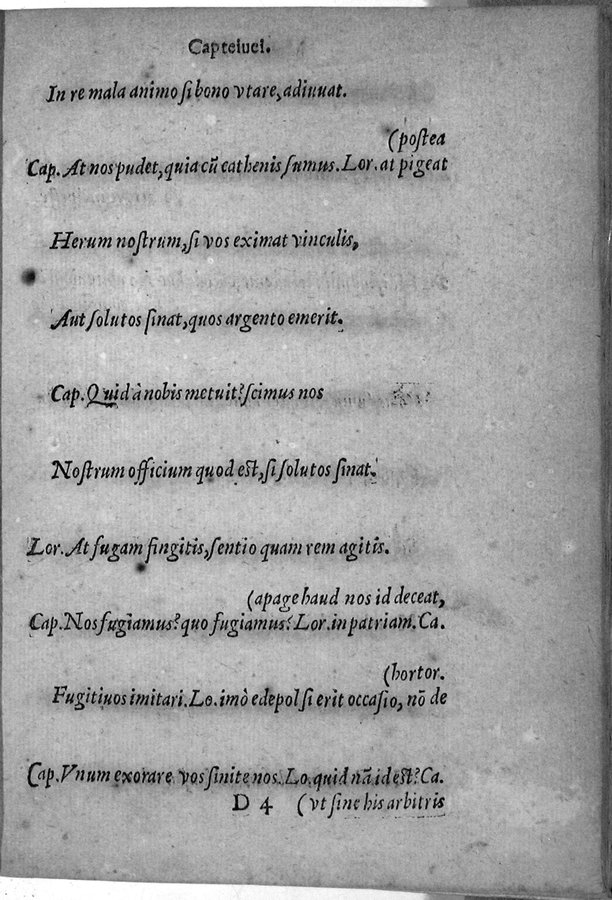 Capteiuei.
In re mala animo ſi bono vtare, adiuuat.
(poſtea
Cap. At nos pudet, quia cū cathenis ſumus. Lor. at pigeat
Herum noſtrum, ſi vos eximat vinculis,
Aut ſolutos ſinat, quos argento emerit.
Cap. Quid à nobis metuit? ſcimus nos
Noſtrum officium quod eſt, ſi ſolutos ſinat.
Lor. At fugam fingitis, ſentio quam rem agitis.
(apage haud nos id deceat,
Cap. Nos fugiamus? quo fugiamus? Lor. in patriam. Ca.
(hortor.
Fugitiuos imitari. Lo. imò edepol ſi erit occaſio, nō de
Cap. Vnum exorare vos ſinite nos. Lo. quid nā id eſt? Ca.
D 4 (vt ſine his arbitris